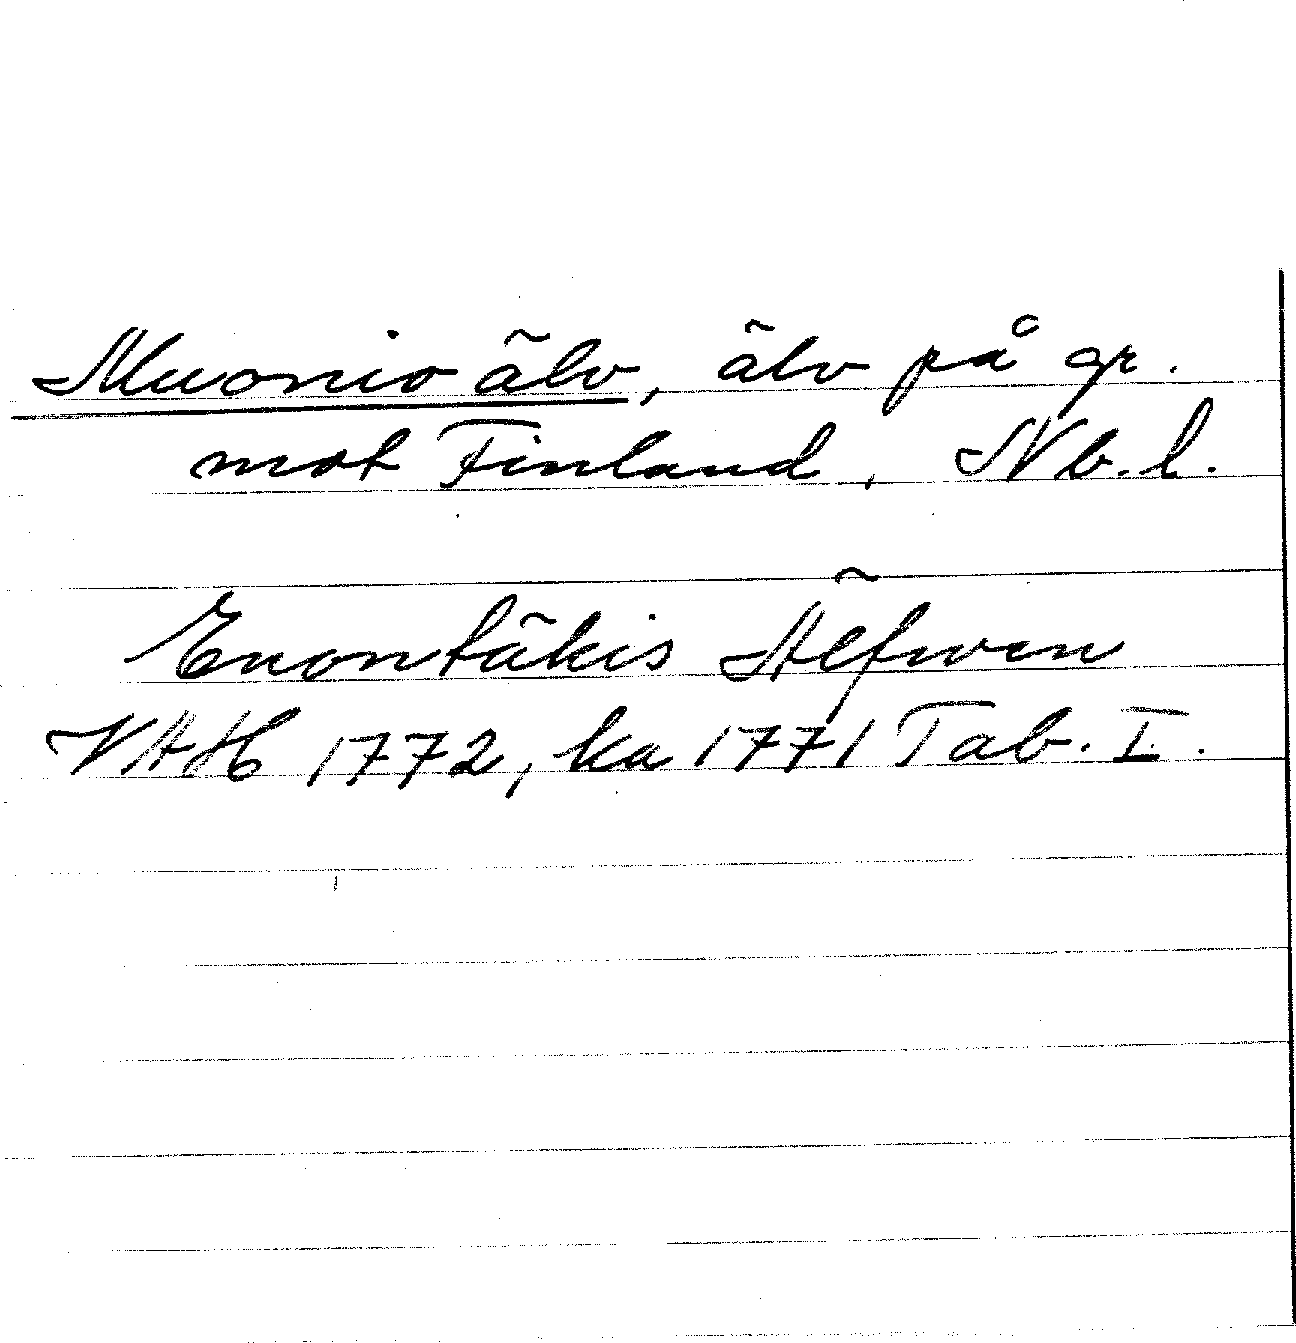 Muonio älv, älv på gr.
mot Finland, Nb. l.
Enontäkis Älfwen
VAH 1772, ka 1771 Tab. I.